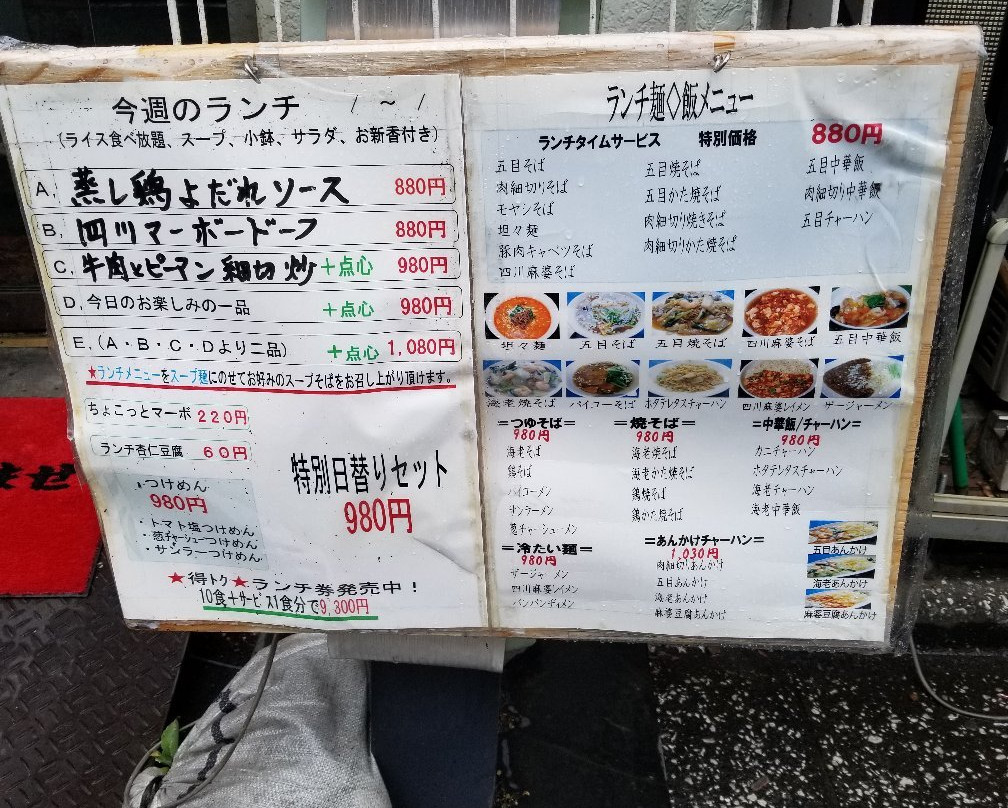 今週のランチ　/ ～ /
(ライス食べ放題、スープ、小鉢、サラダ、お新香付き)
A. 蒸し鶏よだれソース 880円
B. 四川マーボードーフ 880円
C. 牛肉とピーマン細切炒 +点心 980円
D. 今日のお楽しみの一品 +点心 980円
E. (A・B・C・Dより二品) +点心 1,080円
★ランチメニューをスープ麺にのせてお好みのスープそばをお召し上がり頂けます。
ちょこっとマーボ 220円
ランチ杏仁豆腐 60円
つけめん
980円
・トマト塩つけめん
・葱チャーシューつけめん
・サンラーつけめん
特別日替りセット
980円
★得トク★ランチ券発売中！
10食+サービス1食分で9,300円
ランチ麺◇飯メニュー
ランチタイムサービス 特別価格 880円
五目そば
肉細切りそば
モヤシそば
坦々麺
豚肉キャベツそば
四川麻婆そば
五目焼そば
五目かた焼そば
肉細切り焼きそば
肉細切りかた焼そば
五目中華飯
肉細切り中華飯
五目チャーハン
坦々麺 五目そば 五目焼そば 四川麻婆そば 五目中華飯
海老焼そば パイコーそば ホタテレタスチャーハン 四川麻婆レイメン ザージャーメン
=つゆそば=
980円
海老そば
鶏そば
パイコーメン
サンラーメン
葱チャーシューメン
=焼そば=
980円
海老焼そば
海老かた焼そば
鶏焼そば
鶏かた焼そば
=中華飯/チャーハン=
980円
カニチャーハン
ホタテレタスチャーハン
海老チャーハン
海老中華飯
=冷たい麺=
980円
ザージャーメン
四川麻婆レイメン
バンバンヂィメン
=あんかけチャーハン=
1,030円
肉細切りあんかけ
五目あんかけ
海老あんかけ
麻婆豆腐あんかけ
五目あんかけ
海老あんかけ
麻婆豆腐あんかけ
ませ